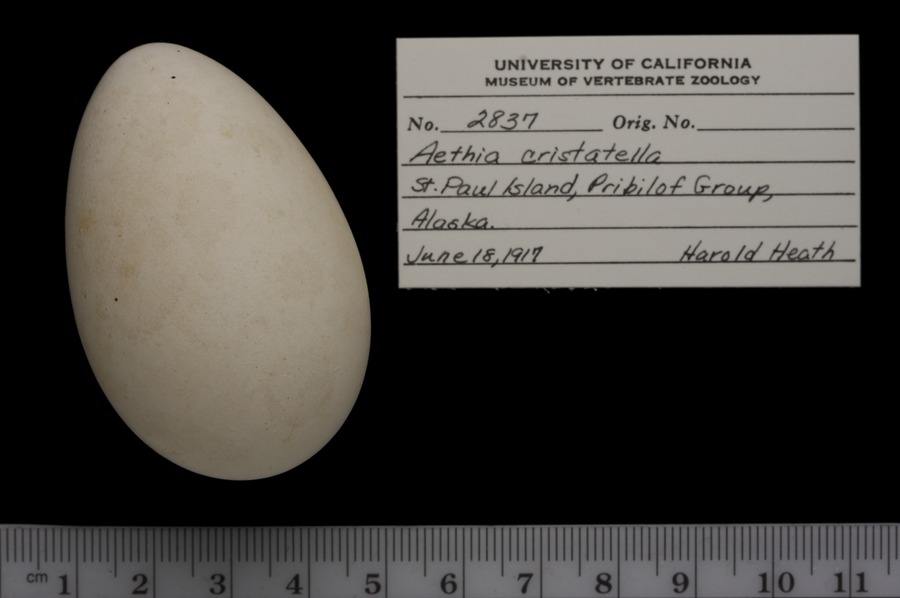 UNIVERSITY OF CALIFORNIA
MUSEUM OF VERTEBRATE ZOOLOGY
No. 2837 Orig. No.
Aethia cristatella
St. Paul Island, Pribilof Group,
Alaska.
June 18, 1917 Harold Heath
cm 1 2 3 4 5 6 7 8 9 10 11